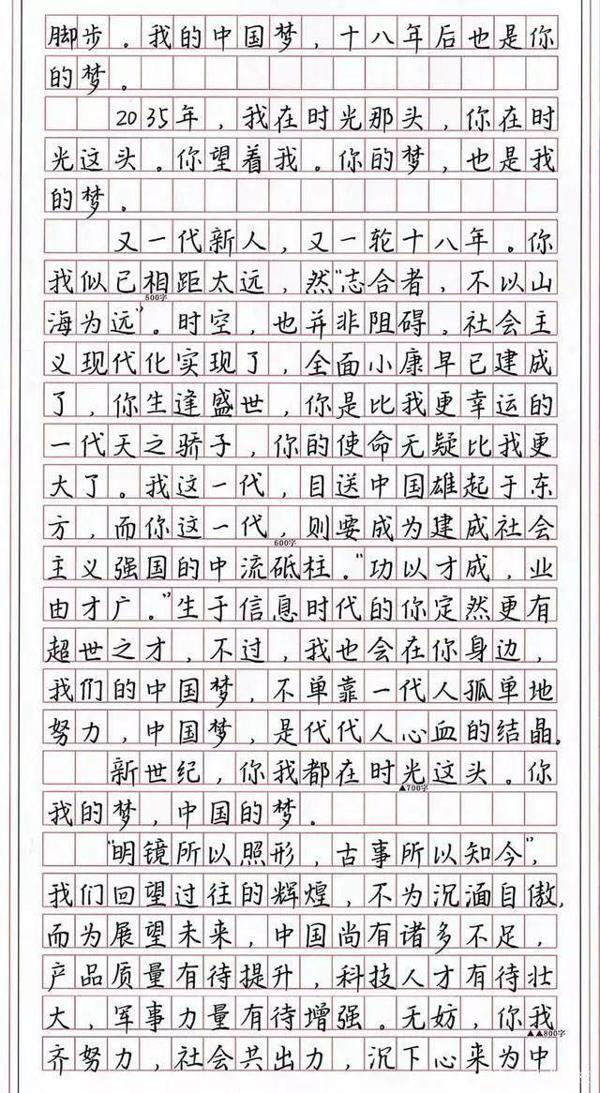 脚步。我的中国梦，十八年后也是你
的梦。
2035年，我在时光那头，你在时
光这头。你望着我。你的梦，也是我
的梦。
又一代新人，又一轮十八年。你
我似已相距太远，然"志合者，不以山
500字
海为远"。时空，也并非阻碍。社会主
义现代化实现了，全面小康早已建成
了，你生逢盛世，你是比我更幸运的
一代天之骄子，你的使命无疑比我更
大了。我这一代，目送中国雄起于东
方，而你这一代，则要成为建成社会
600字
主义强国的中流砥柱。"功以才成，业
由才广。"生于信息时代的你定然更有
超世之才，不过，我也会在你身边，
我们的中国梦，不单靠一代人孤单地
努力，中国梦，是代代人心血的结晶。
新世纪，你我都在时光这头。你
▲700字
我的梦，中国的梦。
"明镜所以照形，古事所以知今"，
我们回望过往的辉煌，不为沉湎自傲，
而为展望未来，中国尚有诸多不足，
产品质量有待提升，科技人才有待壮
大，军事力量有待增强。无妨，你我
▲▲800字
齐努力，社会共出力，沉下心来为中